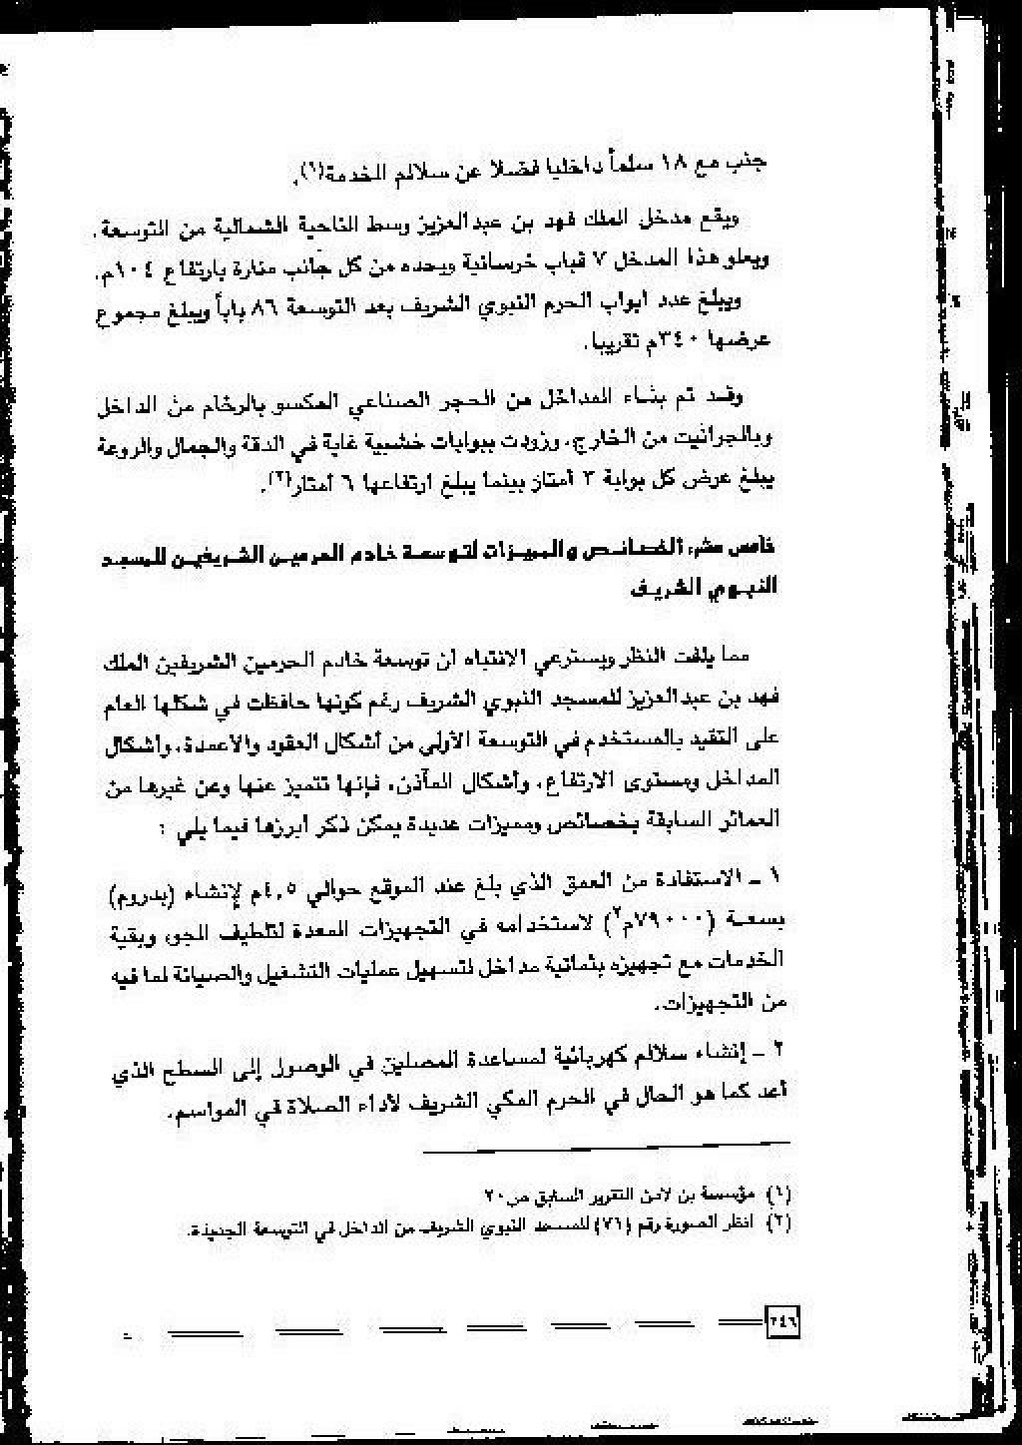 جنب مع ١٨ سلماً داخليا فضلا عن سلالم الخدمة(١).
ويقع مدخل الملك فهد بن عبدالعزيز وسط الناحية الشمالية من التوسعة.
ويعلو هذا المدخل ٧ قباب خرسانية ويحده من كل جانب منارة بارتفاع ١٠٤م.
ويبلغ عدد ابواب الحرم النبوي الشريف بعد التوسعة ٨٦ باباً ويبلغ مجموع
عرضها ٣٤٠م تقريبا.
وقد تم بناء المداخل من الحجر الصناعي المكسو بالرخام من الداخل
وبالجرانيت من الخارج، وزودت ببوابات خشبية غاية في الدقة والجمال والروعة
يبلغ عرض كل بوابة ٣ أمتار بينما يبلغ ارتفاعها ٦ أمتار(٢).
خامس عشر: الخصائص والمميزات لتوسعة خادم الحرمين الشريفين للمسجد
النبوي الشريف
مما يلفت النظر ويسترعي الانتباه أن توسعة خادم الحرمين الشريفين الملك
فهد بن عبدالعزيز للمسجد النبوي الشريف رغم كونها حافظت في شكلها العام
على التقيد بالمستخدم في التوسعة الأولى من أشكال العقود والاعمدة، وأشكال
المداخل ومستوى الارتفاع، وأشكال المآذن، فإنها تتميز عنها وعن غيرها من
العمائر السابقة بخصائص ومميزات عديدة يمكن ذكر أبرزها فيما يلي :
١ - الاستفادة من العمق الذي بلغ عند الموقع حوالي ٤,٥م لإنشاء (بدروم)
بسعة (٧٩٠٠٠م٢) لاستخدامه في التجهيزات المعدة لتلطيف الجو، وبقية
الخدمات مع تجهيزه بثمانية مداخل لتسهيل عمليات التشغيل والصيانة لما فيه
من التجهيزات.
٢ - إنشاء سلالم كهربائية لمساعدة المصلين في الوصول إلى السطح الذي
أعد كما هو الحال في الحرم المكي الشريف لأداء الصلاة في المواسم.
(١) مؤسسة بن لادن التقرير السابق ص٢٠
(٢) انظر الصورة رقم (٧٦) للمسجد النبوي الشريف من الداخل في التوسعة الجديدة.
٢٤٦